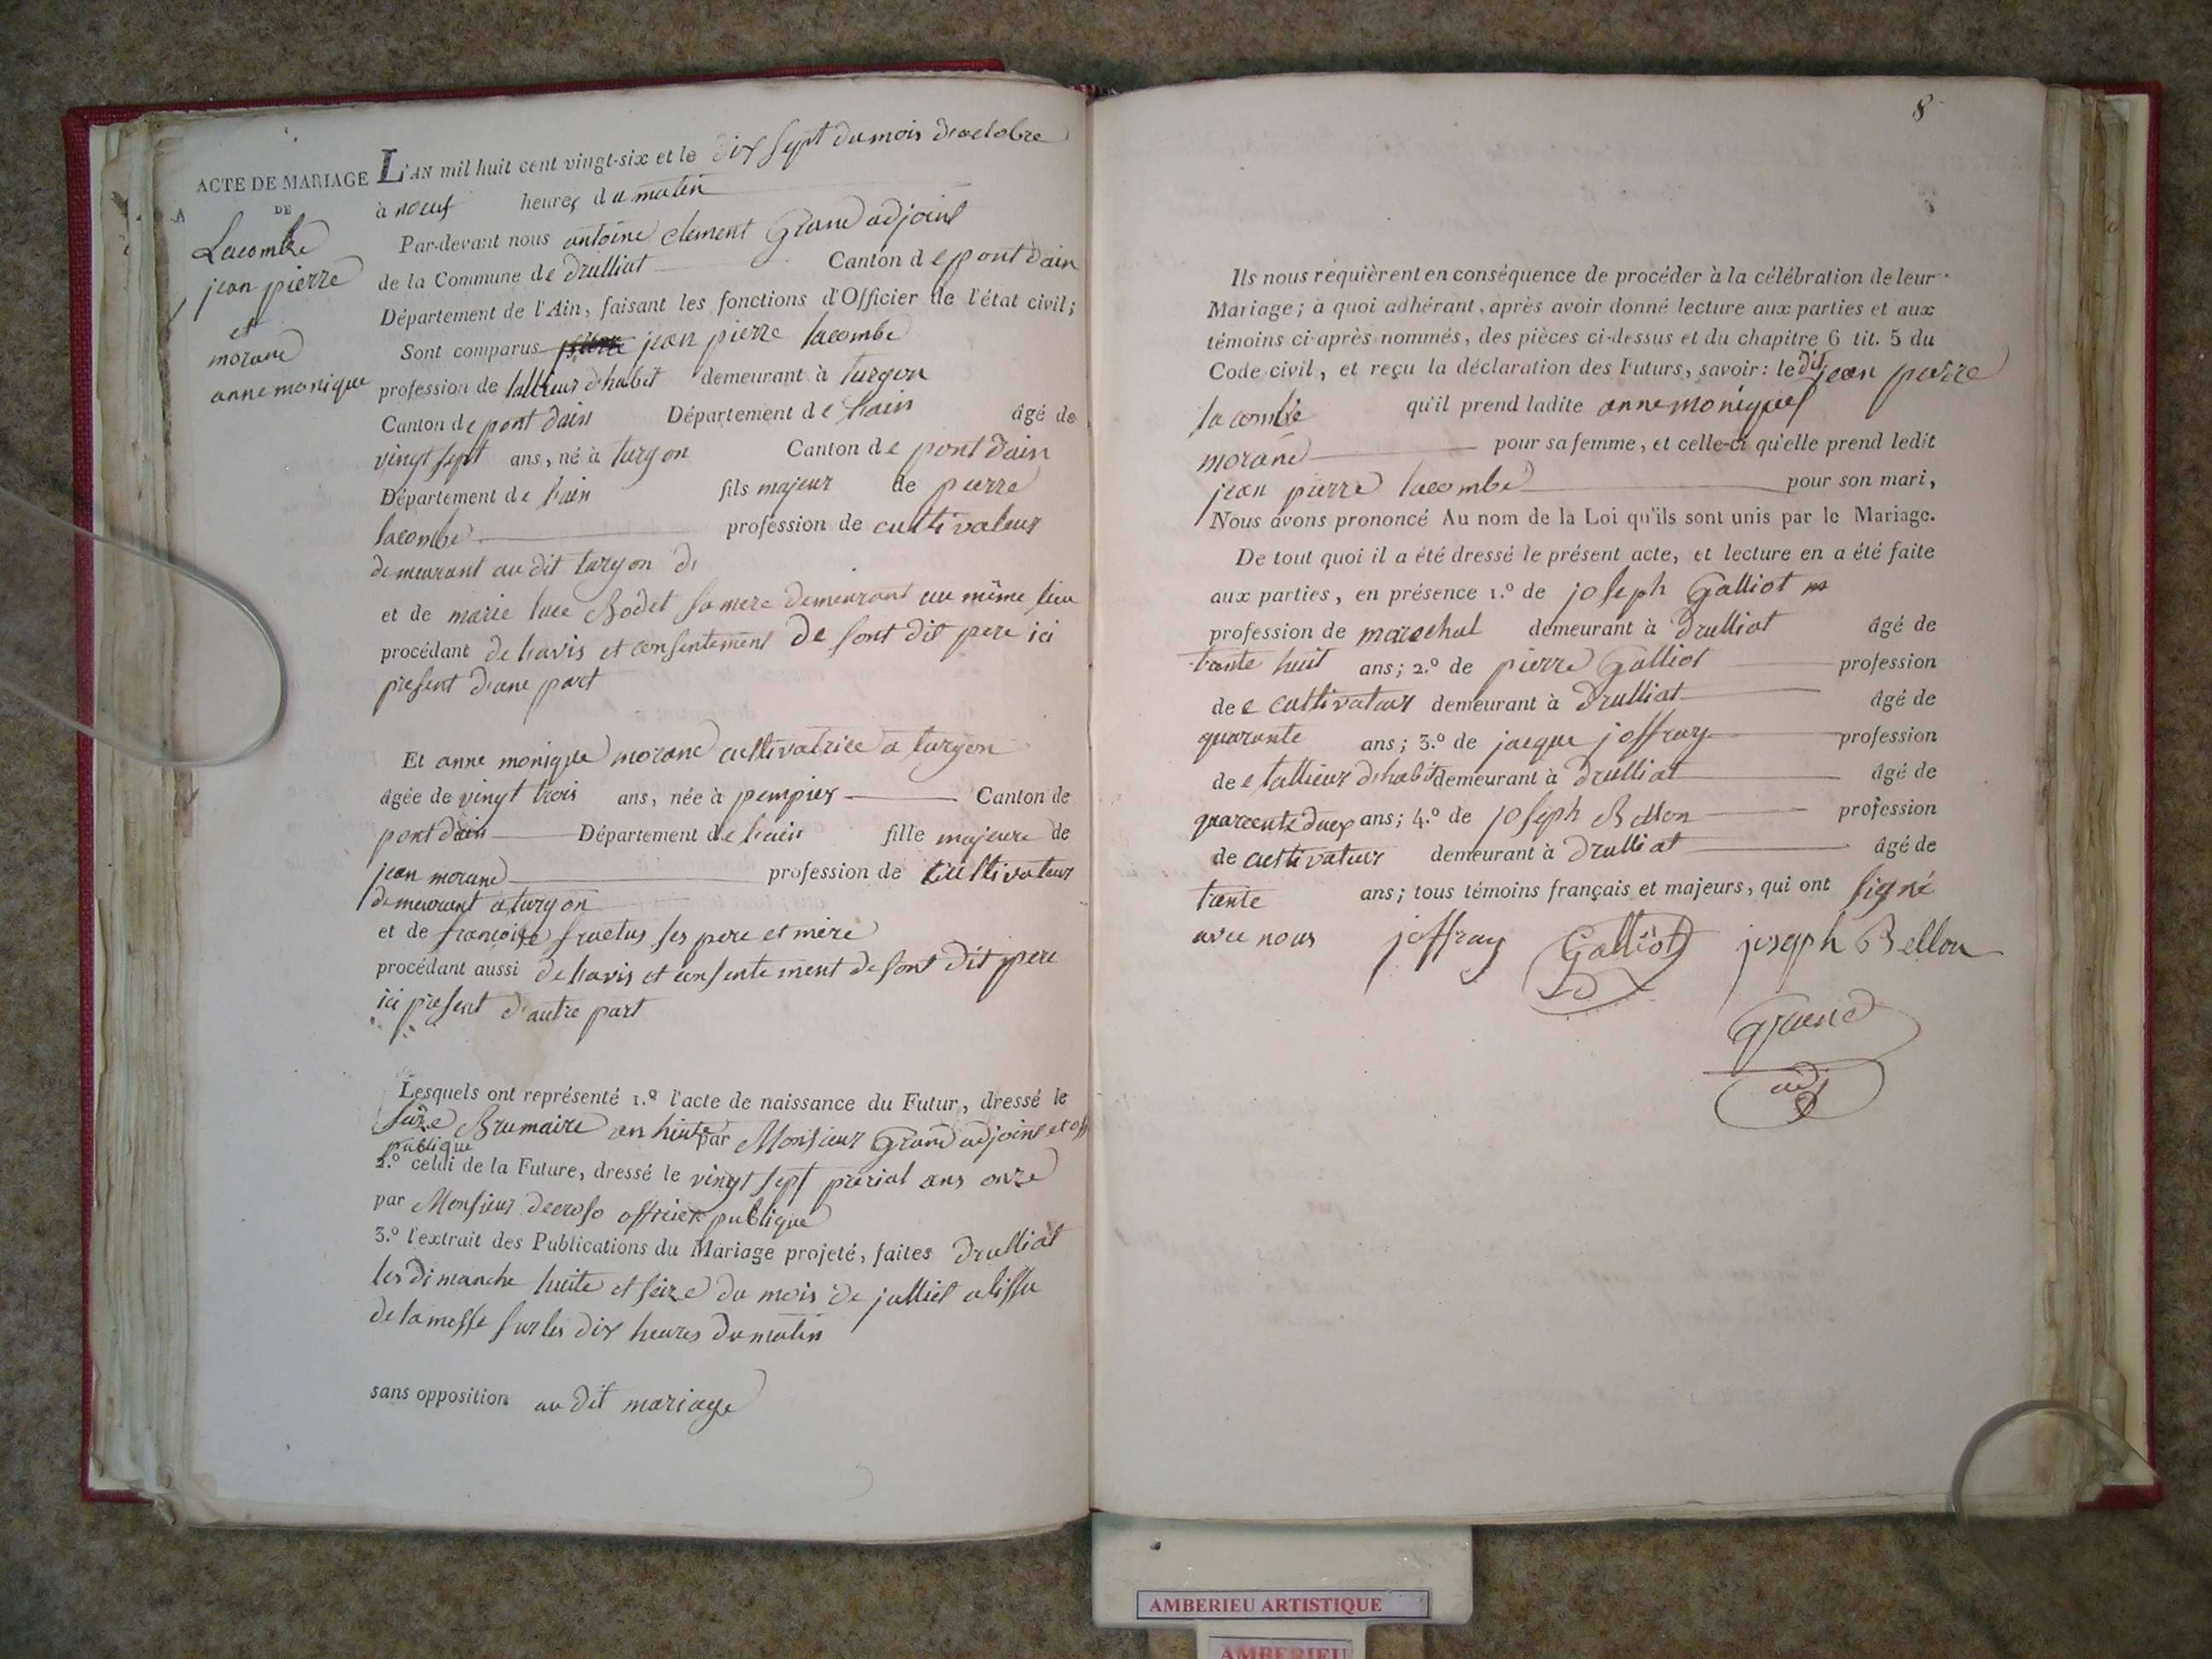 ACTE DE MARIAGE
DE
Lacombe
jean pierre
et
morand
anne monique
L'AN mil huit cent vingt-six et le dix sept du mois de octobre
à neuf heures du matin
Par-devant nous antoine clement Grand adjoint
de la Commune de Drulliat Canton de pont dain
Département de l'Ain, faisant les fonctions d'Officier de l'état civil;
Sont comparus jean pierre lacombe
profession de tallieur dhabit demeurant à turgon
Canton de pont dain Département de lain âgé de
vingt sept ans, né à turgon Canton de pont dain
Département de lain fils majeur de pierre
lacombe profession de cultivateur
demeurant au dit turgon de
et de marie luce Bodet sa mere demeurant au même lieu
procédant de lavis et consentement de sont dit pere ici
present d'une part
Et anne monique morand cultivatrice a turgon
âgée de vingt trois ans, née à pempier Canton de
pont dain Département de lain fille majeure de
jean morand profession de cultivateur
demeurant a turgon
et de françoise fructus ses pere et mère
procédant aussi de lavis et consentement de sont dit pere
ici present d'autre part
Lesquels ont représenté 1.º l'acte de naissance du Futur, dressé le
seize Brumaire an huite par Monsieur Grand adjoint et off
publique
2.º celui de la Future, dressé le vingt sept prerial ans onze
par Monsieur decroso officier publique
3.º l'extrait des Publications du Mariage projeté, faites Drulliat
les dimanche huite et seize du mois de julliet a lissu
de la messe sur les dix heures du matin
sans opposition au dit mariage
8
Ils nous requièrent en conséquence de procéder à la célébration de leur
Mariage; à quoi adhérant, après avoir donné lecture aux parties et aux
témoins ci-après nommés, des pièces ci-dessus et du chapitre 6 tit. 5 du
Code civil, et reçu la déclaration des Futurs, savoir: le dit jean pierre
lacombe qu'il prend ladite anne monique
morand pour sa femme, et celle-ci qu'elle prend ledit
jean pierre lacombe pour son mari,
Nous avons prononcé Au nom de la Loi qu'ils sont unis par le Mariage.
De tout quoi il a été dressé le présent acte, et lecture en a été faite
aux parties, en présence 1.º de joseph Galliot
profession de marechal demeurant à Drulliat âgé de
trante huit ans; 2.º de pierre Galliot profession
de e cultivateur demeurant à Drulliat âgé de
quarante ans; 3.º de jacque joffray profession
de e tallieur dhabit demeurant à Drulliat âgé de
quarente duex ans; 4.º de joseph Bellon profession
de cultivateur demeurant à Drulliat âgé de
trante ans; tous témoins français et majeurs, qui ont signé
avec nous joffray Galliot joseph Bellon
Grand
adj
AMBERIEU ARTISTIQUE
AMBERIEU